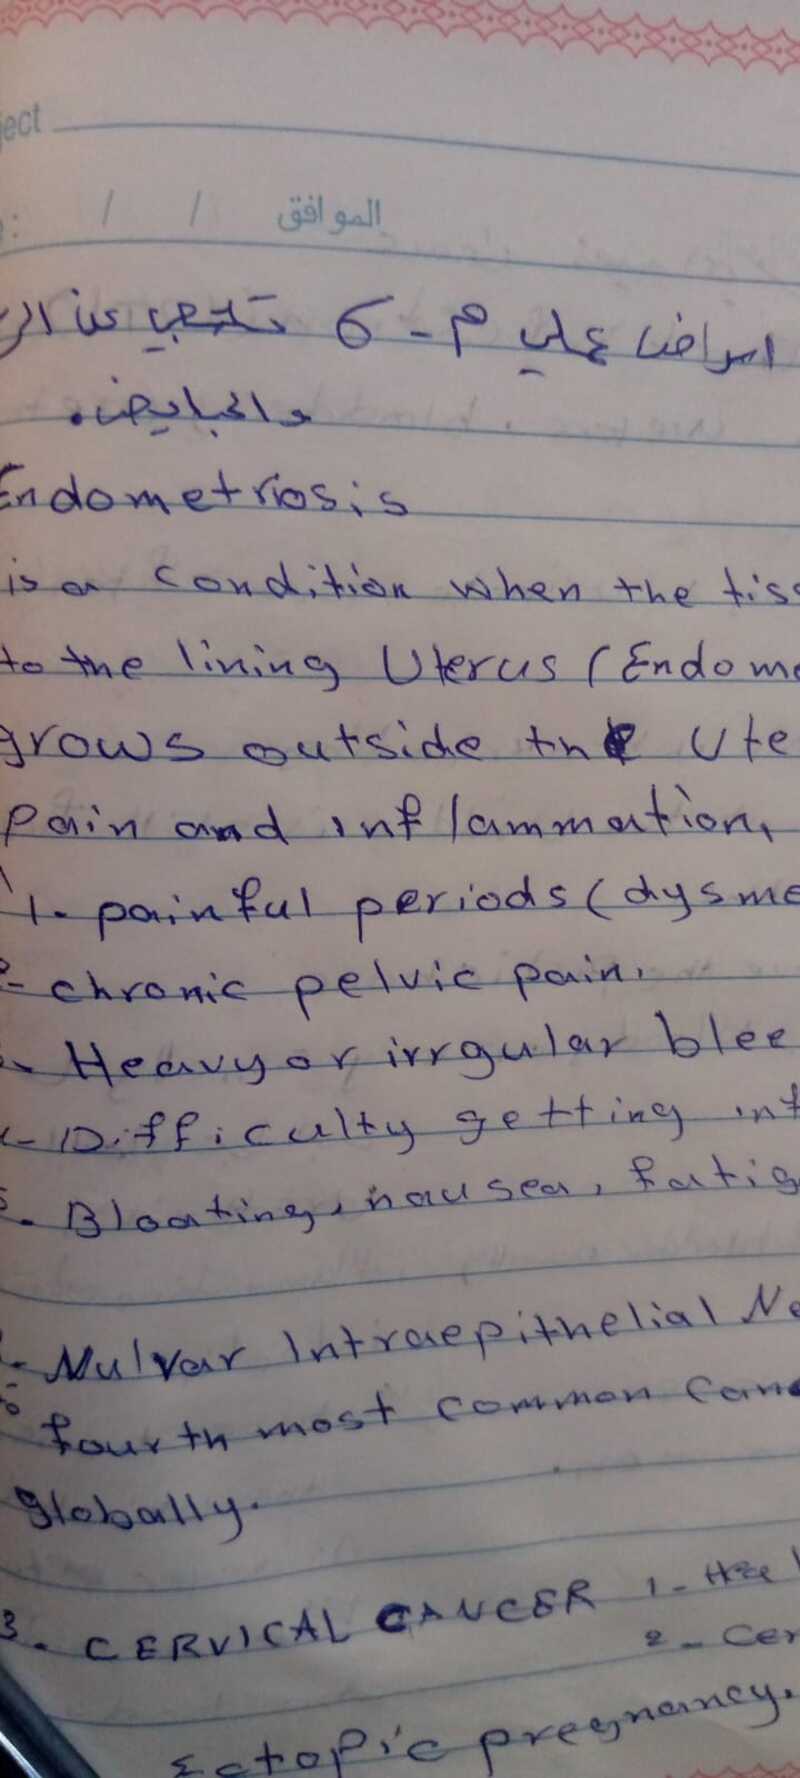 ject
: / / الموافق
امراض علي م - 6 تصيب عن الر
والمبايض.
Endometriosis
is a condition when the tiss
to the lining Uterus (Endome
grows outside the Ute
Pain and inflammation,
1- painful periods (dysme
2- chronic pelvic pain.
- Heavy or irrgular blee
- Difficulty getting int
5- Bloating, nausea, fatig
- Nulvar Intraepithelial Ne
fourth most common canc
globally.
3- CERVICAL CANCER 1- H
2- Cer
Ectopic pregnancy.